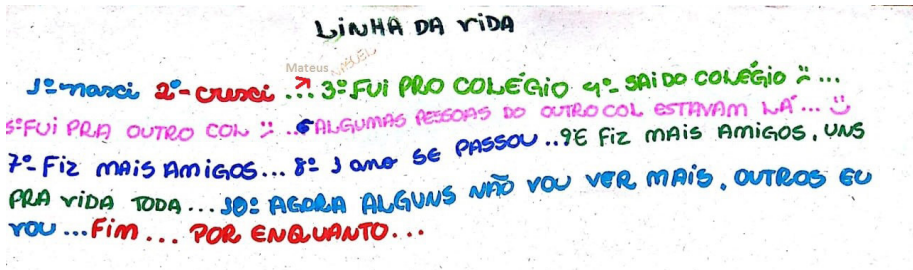 LINHA DA VIDA
Mateus NAGUEL
1º-nasci 2º-cresci ...? 3º FUI PRO COLÉGIO 4º- SAI DO COLÉGIO :( ...
5º FUI PRA OUTRO COL :( ...6 ALGUMAS PESSOAS DO OUTRO COL ESTAVAM LÁ... :)
7º- FIZ MAIS AMIGOS... 8º- 1 ano SE PASSOU ..9E FIZ MAIS AMIGOS, UNS
PRA VIDA TODA ... 10º AGORA ALGUNS NÃO VOU VER MAIS, OUTROS EU
VOU ... FIM ... POR ENQUANTO...